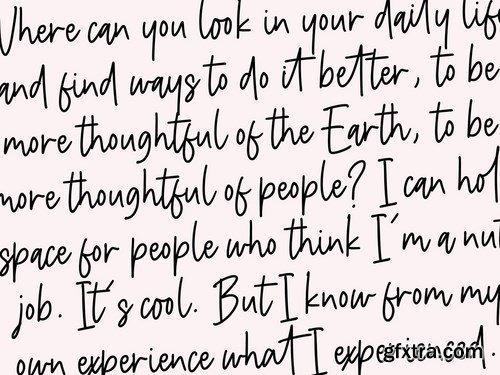 Where can you look in your daily life
and find ways to do it better, to be
more thoughtful of the Earth, to be
more thoughtful of people? I can hol
space for people who think I'm a nut
job. It's cool. But I know from my
own experience what I experienced.
gfxtra.com